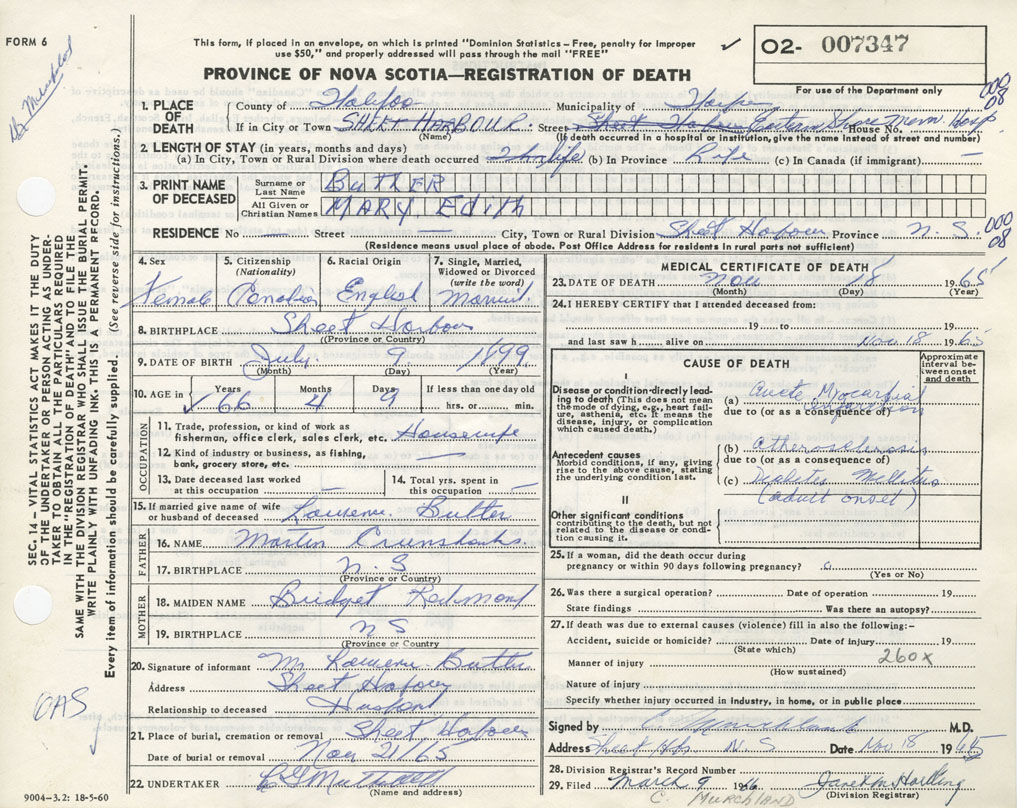 FORM 6
This form, if placed in an envelope, on which is printed "Dominion Statistics – Free, penalty for improper
use $50," and properly addressed will pass through the mail "FREE"
✓ 02- 007347
PROVINCE OF NOVA SCOTIA—REGISTRATION OF DEATH
For use of the Department only
1. PLACE OF DEATH County of Halifax Municipality of
If in City or Town SHEET HARBOUR Street Eastern Shore Mem. Hosp House No.
(Name) (If death occurred in a hospital or institution, give its name instead of street and number)
2. LENGTH OF STAY (in years, months and days)
(a) In City, Town or Rural Division where death occurred (b) In Province Life (c) In Canada (if immigrant) —
3. PRINT NAME OF DECEASED Surname or Last Name BUTLER
All Given or Christian Names MARY, Edith
RESIDENCE No — Street — City, Town or Rural Division Sheet Harbour Province N. S.
(Residence means usual place of abode. Post Office Address for residents in rural parts not sufficient)
000
08
4. Sex Female
5. Citizenship (Nationality) Canadian
6. Racial Origin English
7. Single, Married, Widowed or Divorced (write the word) Married
8. BIRTHPLACE Sheet Harbour
(Province or Country)
9. DATE OF BIRTH July 9 1899
(Month) (Day) (Year)
10. AGE in Years 66 Months 4 Days 9 If less than one day old hrs. or min.
OCCUPATION
11. Trade, profession, or kind of work as fisherman, office clerk, sales clerk, etc. Housewife
12. Kind of industry or business, as fishing, bank, grocery store, etc. —
13. Date deceased last worked at this occupation —
14. Total yrs. spent in this occupation —
15. If married give name of wife or husband of deceased Butler
FATHER
16. NAME Martin
17. BIRTHPLACE N. S
(Province or Country)
MOTHER
18. MAIDEN NAME Bridget Redmond
19. BIRTHPLACE N S
(Province or Country)
20. Signature of informant Mr Butler
Address Sheet Harbour
Relationship to deceased Husband
21. Place of burial, cremation or removal Sheet Harbour
Date of burial or removal Nov 21/65
22. UNDERTAKER
(Name and address)
9004-3.2: 18-5-60
MEDICAL CERTIFICATE OF DEATH
23. DATE OF DEATH Nov 18 1965
(Month) (Day) (Year)
24. I HEREBY CERTIFY that I attended deceased from:
19 to 19
and last saw h alive on Nov 18 1965
CAUSE OF DEATH
Approximate interval between onset and death
I
Disease or condition directly leading to death (This does not mean the mode of dying, e.g., heart failure, asthenia, etc. It means the disease, injury, or complication which caused death.)
(a) Acute Myocardial infarction
due to (or as a consequence of)
Antecedent causes
Morbid conditions, if any, giving rise to the above cause, stating the underlying condition last.
(b) atherosclerosis
due to (or as a consequence of)
(c) Diabetes Mellitus
(adult onset)
II
Other significant conditions
contributing to the death, but not related to the disease or condition causing it.
25. If a woman, did the death occur during
pregnancy or within 90 days following pregnancy?
(Yes or No)
26. Was there a surgical operation? Date of operation 19
State findings Was there an autopsy?
27. If death was due to external causes (violence) fill in also the following:–
Accident, suicide or homicide? Date of injury 19
(State which)
260x
Manner of injury
(How sustained)
Nature of injury
Specify whether injury occurred in industry, in home, or in public place
Signed by M.D.
Address Sheet Hbr N. S Date Nov 18 1965
28. Division Registrar's Record Number
29. Filed March 9 1966
(Division Registrar)
C. MURCHLAND
SEC. 14 – VITAL STATISTICS ACT MAKES IT THE DUTY
OF THE UNDERTAKER OR PERSON ACTING AS UNDER-
TAKER TO OBTAIN ALL THE PARTICULARS REQUIRED
IN THE "REGISTRATION OF DEATH" AND TO FILE THE
SAME WITH THE DIVISION REGISTRAR WHO SHALL ISSUE THE BURIAL PERMIT.
WRITE PLAINLY WITH UNFADING INK. THIS IS A PERMANENT RECORD.
Every item of information should be carefully supplied. (See reverse side for instructions.)
OAS